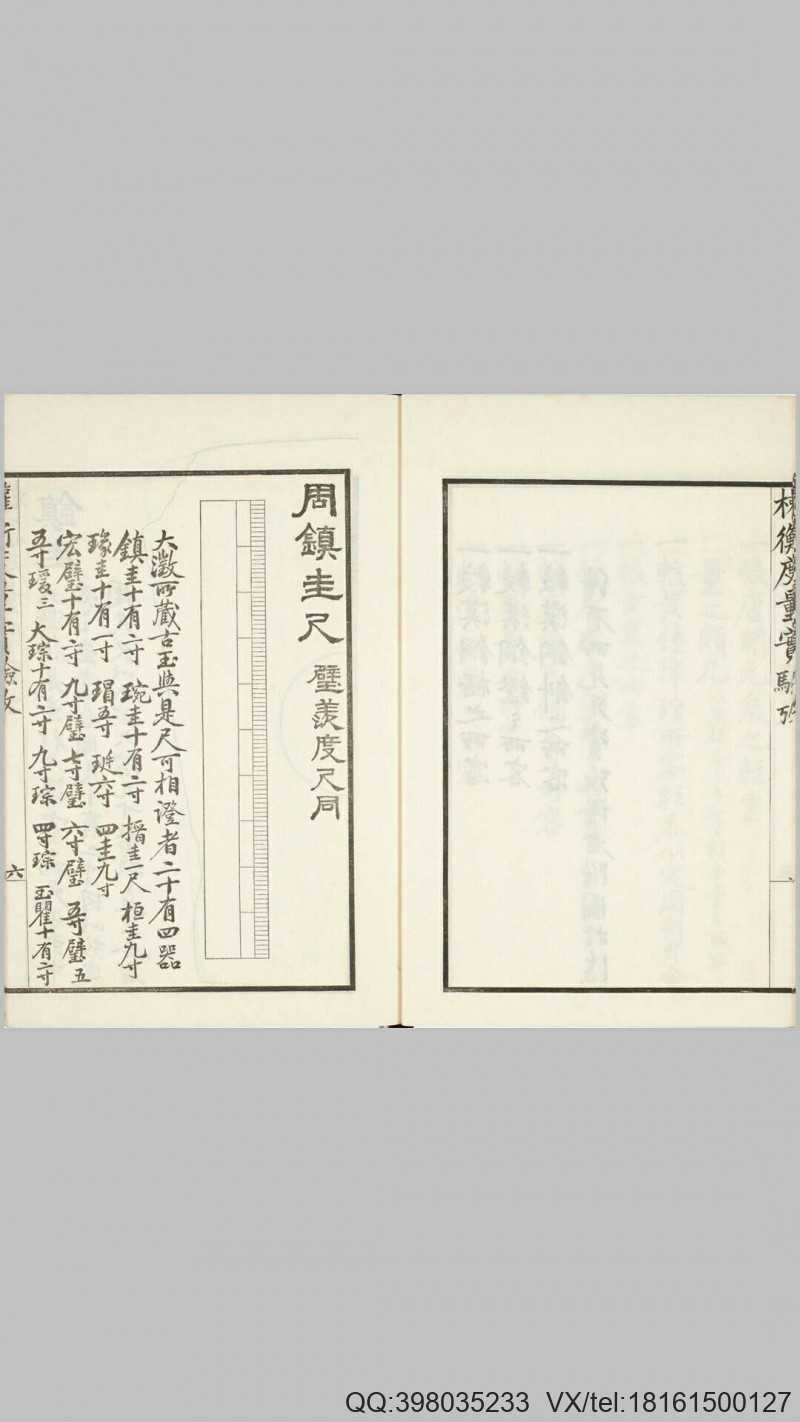 權衡度量實驗攷
周鎮圭尺 璧羨度尺同
大澂所藏古玉與是尺可相證者二十有四器
鎮圭十有二寸 琬圭十有二寸 搢圭一尺 桓圭九寸
瑑圭十有一寸 瑁五寸 珽六寸 四圭九寸
宏璧十有二寸 九寸璧 七寸璧 六寸璧 五寸璧 五
寸瑗三 大琮十有二寸 九寸琮 四寸琮 玉瞿十有二寸
六
QQ:398035233 VX/tel:18161500127